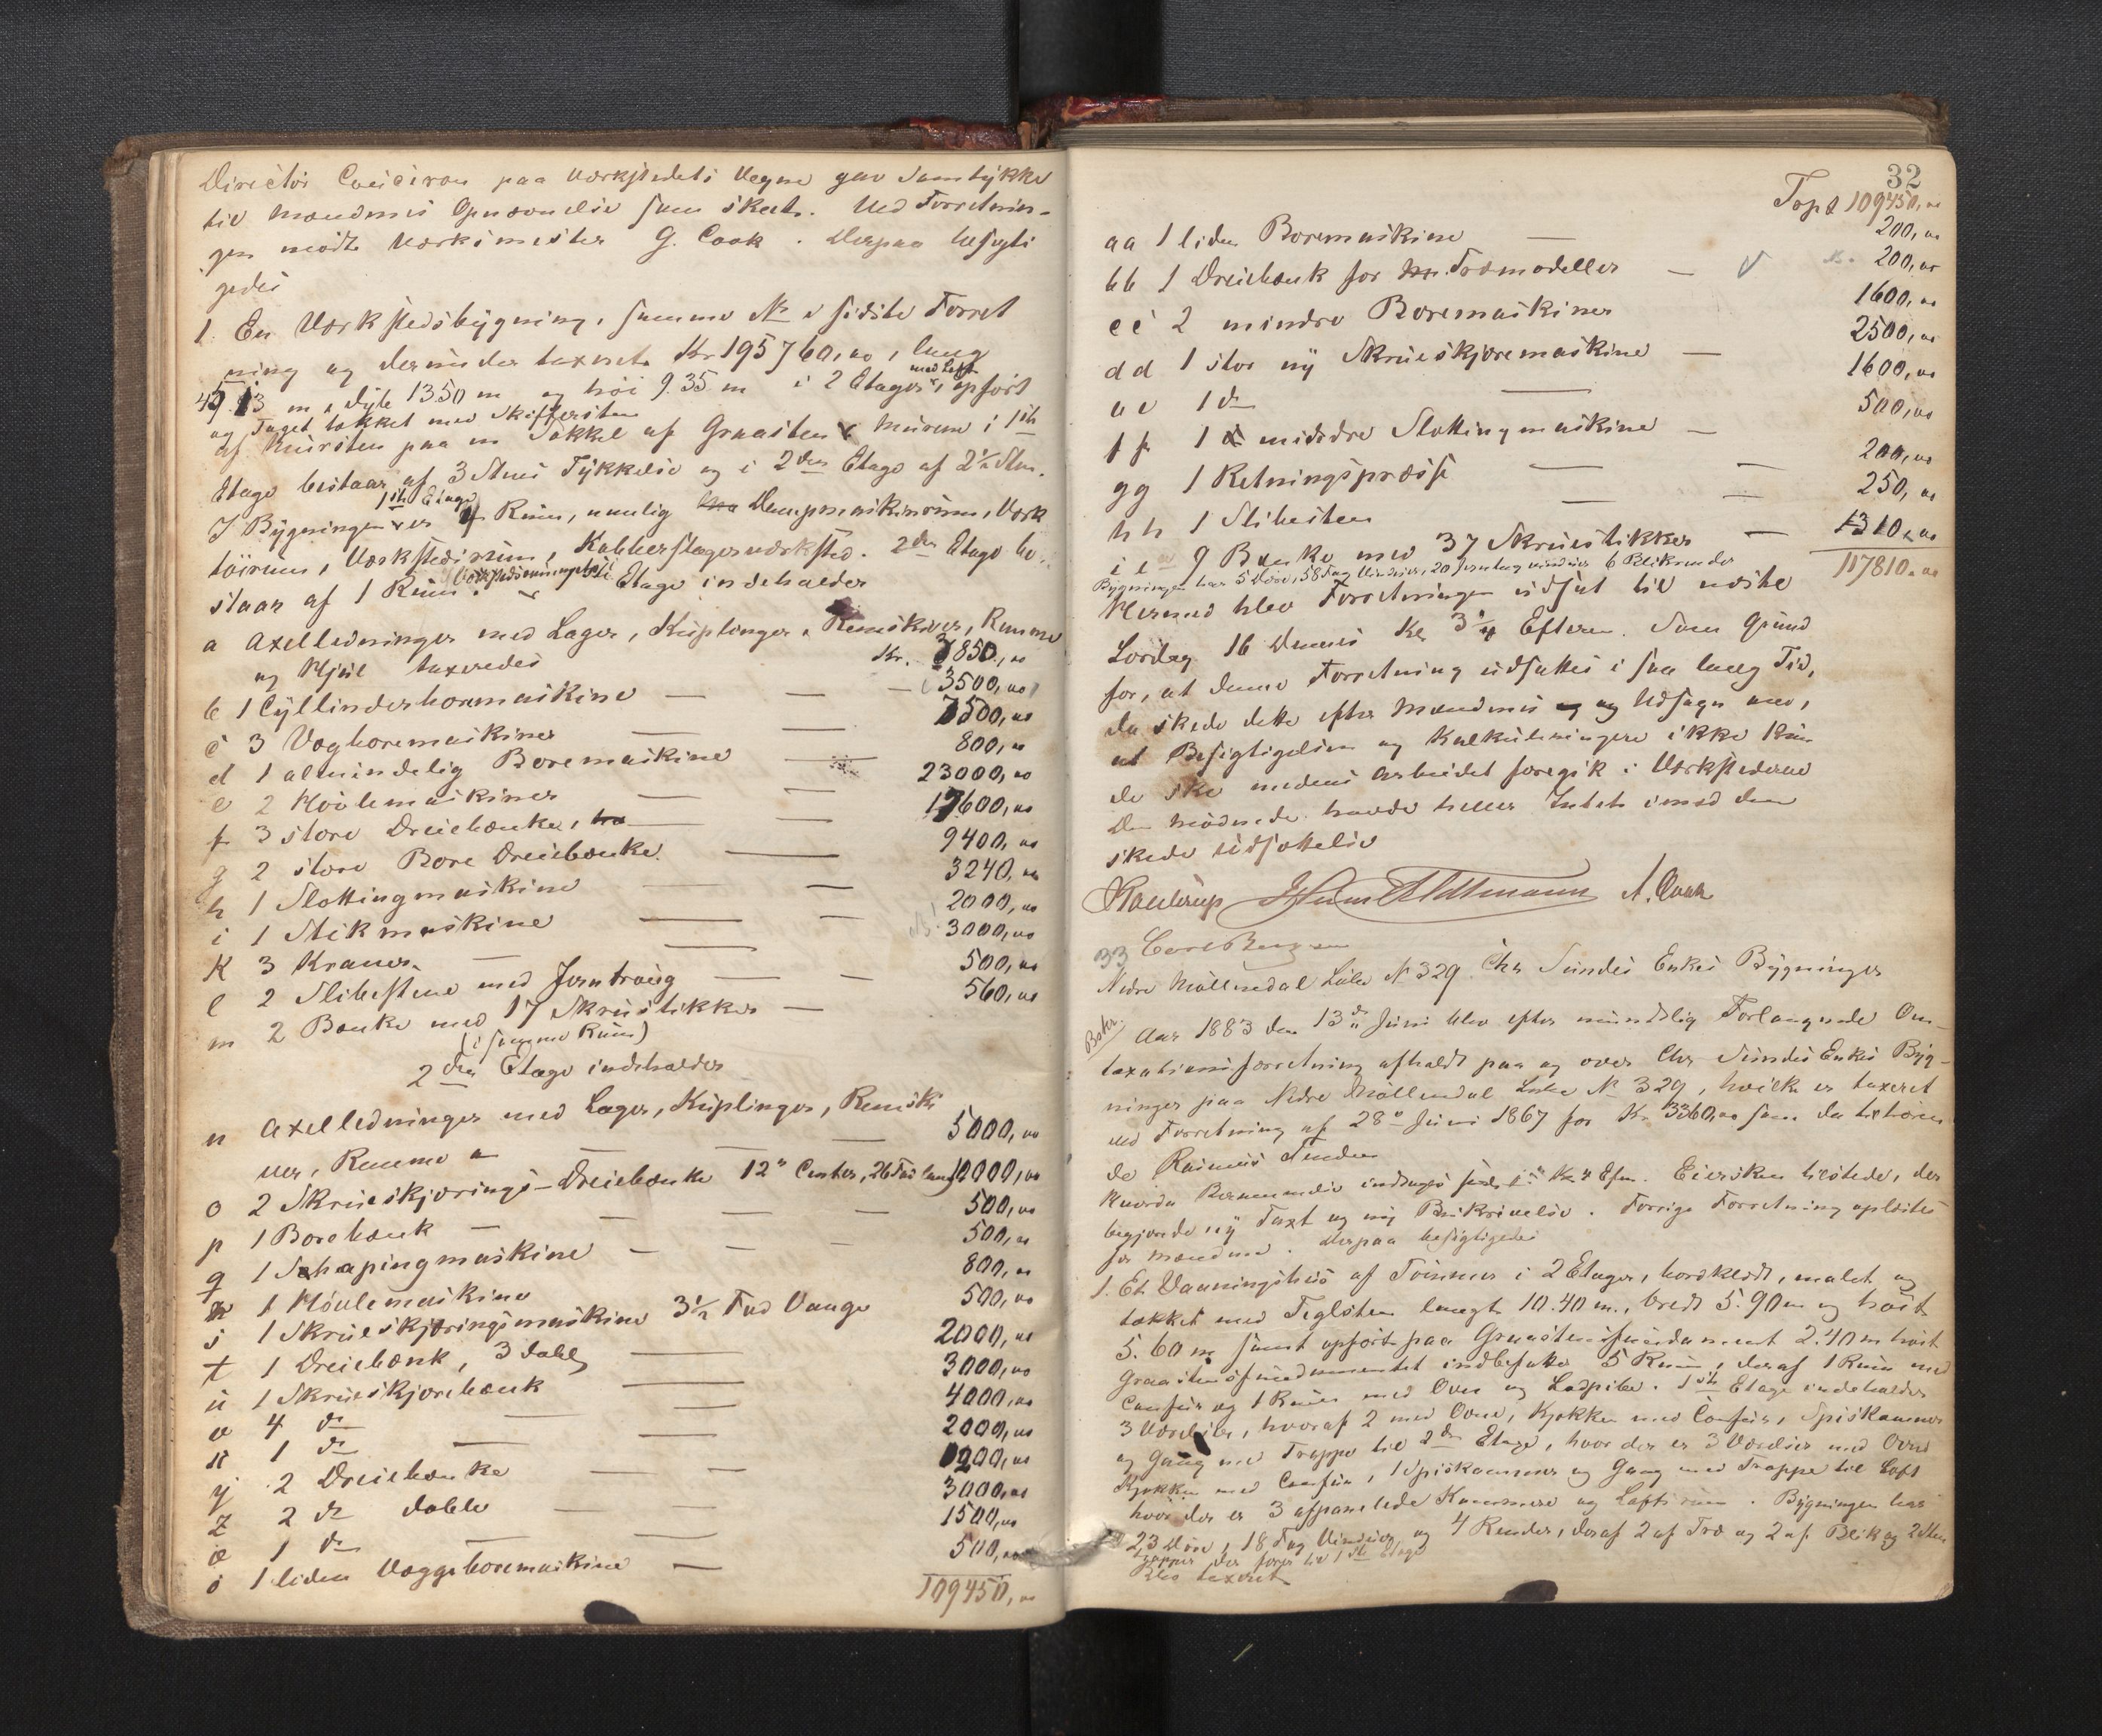 Director paa Værkstedets Vegne gav Samtykke
til Mændenes Opnævnelse som skeet. Ved Forretnin-
gen mødte Værksmester G. Cook. Derpaa besigti
gedes
1. En Værkstedsbygning, samme No i sidste Forret
ning og derunder taxeret Kr 195760,00, lang
med Loft
m, dyb 13.50 m og høi 9.35 m i 2 Etager, opført
og Taget tækket med Skiffersten
af Mursten paa en Sokkel af Graasten. Murene i 1ste
Etage bestaar af 3 Stens Tykkelse og i 2den Etage af 2½ Sten.
1ste Etage
I Bygningen er Rum, nemlig Dampmaskinrum, Værk
tøirum, Værkstedsrum, Kobberslagerværksted. 2den Etage be-
staar af 1 Rum. Etage indeholder
a Axelledninger med Lager, Kuplinger, Remskiver, Remme
og Hjul taxeredes Kr. 3850,00
b 1 Cyllinderboremaskine — — — (3500,00)
c 3 Vægboremaskiner — — 7500,00
d 1 almindelig Boremaskine — 800,00
e 2 Høvlemaskiner — — 23000,00
f 3 store Dreiebænke, — 17600,00
g 2 store Bore Dreiebænke. — 9400,00
h 1 Slottingmaskine — — 3240,00
i 1 Stikmaskine — — 2000,00
K 3 Kraner. — — 3000,00
l 2 Slibestene med Jerntraug — — 500,00
m 2 Bænke med 17 Skruestikker — 560,00
(i samme Rum)
2den Etage indeholder
n Axelledninger med Lager, Kuplinger, Remski
ver, Remme — — — 5000,00
o 2 Skrueskjærings-Dreiebænke 12" Center, 26 Fod lang 10000,00
p 1 Borebænk — — — — 500,00
q 1 Schapingmaskine — — — 500,00
r 1 Høvlemaskine 800,00
s 1 Skrueskjæringsmaskine 3½ Fod Vange 500,00
t 1 Dreiebænk, 3 dobb — 2000,00
u 1 Skrueskjærebænk — 3000,00
v 4 do — — 4000,00
x 1 do — — 2000,00
y 2 Dreiebænke — — 1200,00
z 2 do dobbl — — 3000,00
æ 1 do — — 1500,00
ø 1 liden Væggeboremaskine — 500,00
109450,00
32
Tspt 109450,00
aa 1 liden Boremaskine — 200,00
bb 1 Dreiebænk for Træmodeller — 200,00
cc 2 mindre Boremaskiner 1600,00
dd 1 stor ny Skrueskjæremaskine — 2500,00
ee 1 do — 1600,00
ff 1 mindre Slottingmaskine — 500,00
gg 1 Retningspresse — — 200,00
hh 1 Slibesten — — 250,00
ii 9 Bænke med 37 Skruestikker — 1310,00
Bygningen har 5 Døre, 58 Fag Vinduer, 20 6 Blikrender 117810.00
Hermed blev Forretningen udsat til næste
Lørdag 16 Dennes Kl 3¼ Efterm. Som Grund
for, at denne Forretning udsattes i saa lang Tid,
da skede dette efter Mændenes og Udsagn om,
at Besigtigelsen og Kalkuleringen ikke kun
de ske medens Arbeidet foregik i Værkstederne
De mødende havde heller Intet imod den
skede Udsættelse
A. Cook
33
Nedre Møllendal Litr No 329. Chr Sundes Enkes Bygninger
Aar 1883 den 13de Juni blev efter mundtlig Forlangende Om-
taxationsforretning afholdt paa og over Chr Sundes Enkes Byg-
ninger paa Nedre Møllendal Litr No 329, hvilke er taxeret
ved Forretning af 28de Juni 1867 for Kr 3360,00 som da tilhøren
de Rasmus
Eiersken tilstede, der
begjærede ny Taxt og ny Beskrivelse. Forrige Forretning oplæstes
for Mændene. Derpaa besigtigedes
1. Et Vaaningshus af Tømmer i 2 Etager, bordklædt, malet og
tækket med Teglsten længt 10.40 m., bredt 5.90 m og høit
5.60 m samt opført paa Graastensfundament 2.40 m høit
Graastensfundamentet indbefatter 5 Rum, deraf 1 Rum med
Comfur og 1 Rum med Ovn og Ledpibe. 1ste Etage indeholder
3 Værelser, hvoraf 2 med Ovne, Kjøkken med Comfur, Spiskammer
og Gang med Trappe til 2den Etage, hvor der er 3 Værelser med Ovne
Kjøkken med Comfur, 1 Spiskammer og Gang med Trappe til Loft
hvor der er 3 afpanelede Kammere og Loftsrum. Bygningen har
23 Døre, 18 Fag Vinduer og 4 Render, deraf 2 af Træ og 2 af Blik og 2 Sten
trapper der fører til 1ste Etage
Blev taxeret